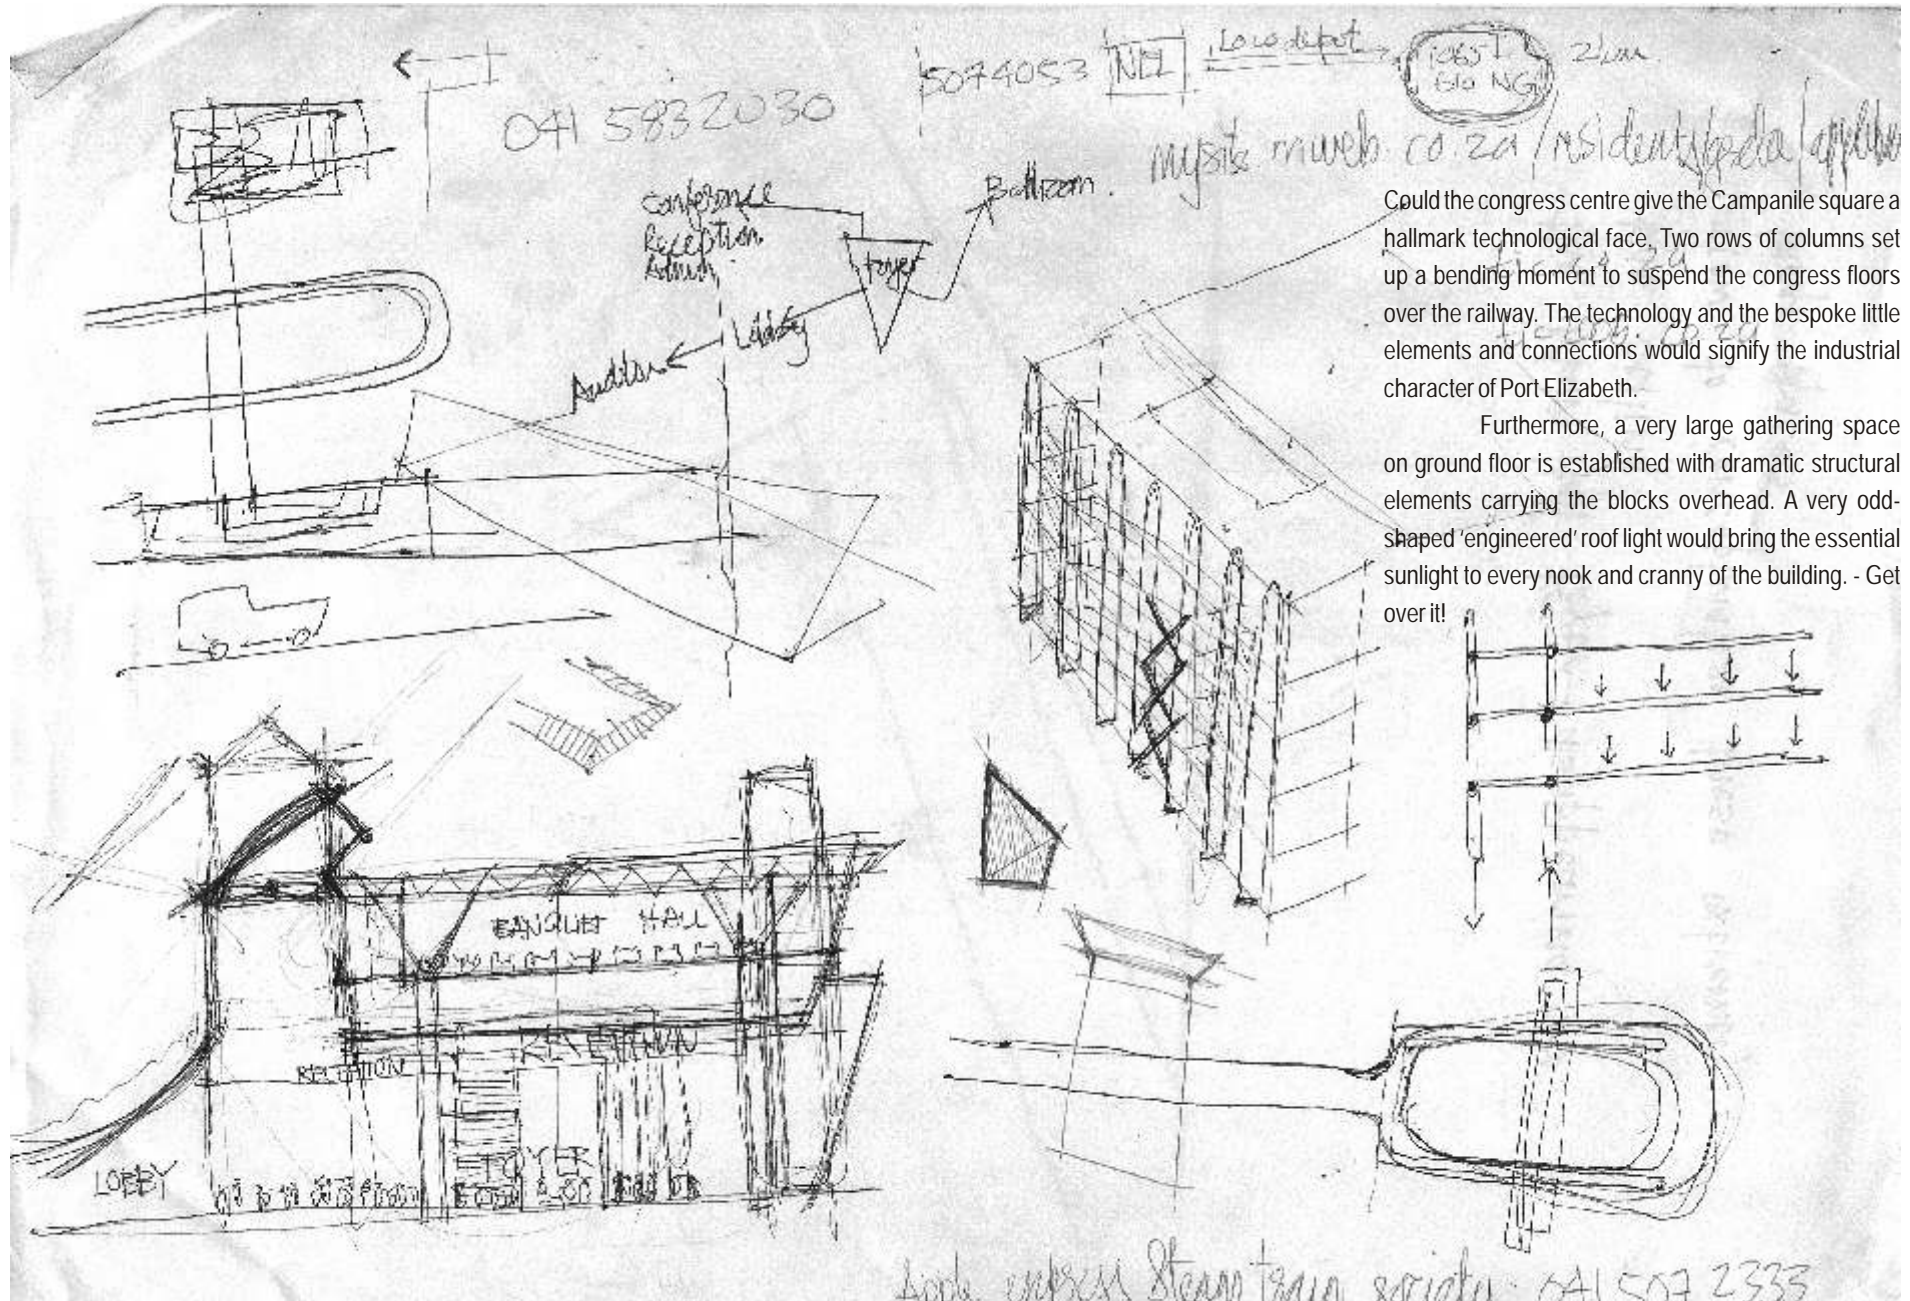 5074053 NEL Loco depot
041 5832030
mysite mweb.co.za/
Conference
Reception
Admin
Foyer
Ballroom.
Lobby
Could the congress centre give the Campanile square a
hallmark technological face. Two rows of columns set
up a bending moment to suspend the congress floors
over the railway. The technology and the bespoke little
elements and connections would signify the industrial
character of Port Elizabeth.
Furthermore, a very large gathering space
on ground floor is established with dramatic structural
elements carrying the blocks overhead. A very odd-
shaped 'engineered' roof light would bring the essential
sunlight to every nook and cranny of the building. - Get
over it!
BANQUET HALL
RECEPTION
LOBBY
FOYER
Apple express Steam train society - 041 507 2333